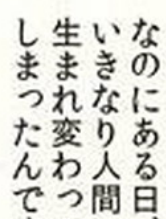 なのにある日
いきなり人間
生まれ変わっ
しまったんで